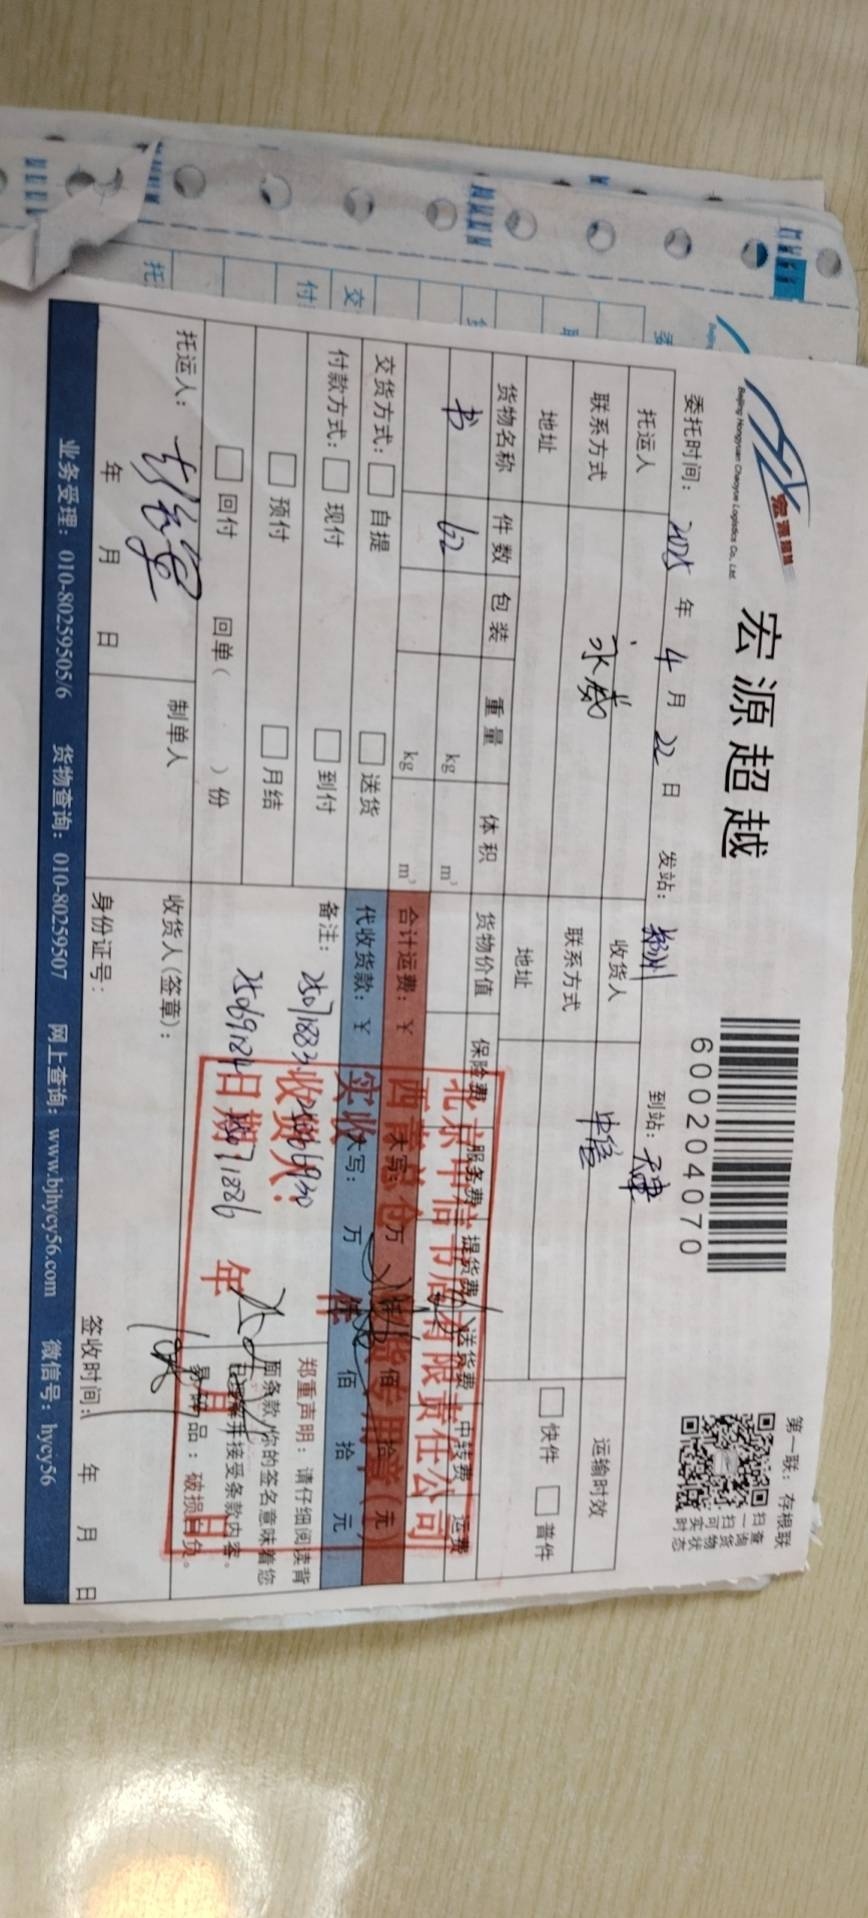 宏源超越
宏源超越
Beijing Hongyuan Chaoyue Logistics Co., Ltd.
600204070
第一联：存根联
扫一扫可实时
查询货物状态
委托时间：2025年4月22日 发站：郑州 到站：天津
托运人 收货人 中信 运输时效
联系方式 联系方式
地址 地址 快件 普件
货物名称 件数 包装 重量 体积 货物价值 保险费 服务费 提货费 送货费 中转费 运费
书 62 kg m³
kg m³
交货方式： 自提 送货 合计运费：￥ 大写： 万 仟 佰 拾 元
付款方式： 现付 到付 代收货款：￥ 大写： 万 仟 佰 拾 元
预付 月结
回付 回单（ ）份
备注： 2507883
郑重声明：请仔细阅读背
面条款，你的签名意味着您
已理解并接受条款内容。
易碎品：破损自负。
北京中信书店有限责任公司
实收 件
收货人：
日期： 年 月 日
托运人： 制单人 收货人(签章)：
年 月 日 身份证号： 签收时间： 年 月 日
业务受理：010-80259505/6 货物查询：010-80259507 网上查询：www.bjhycy56.com 微信号：hycy56